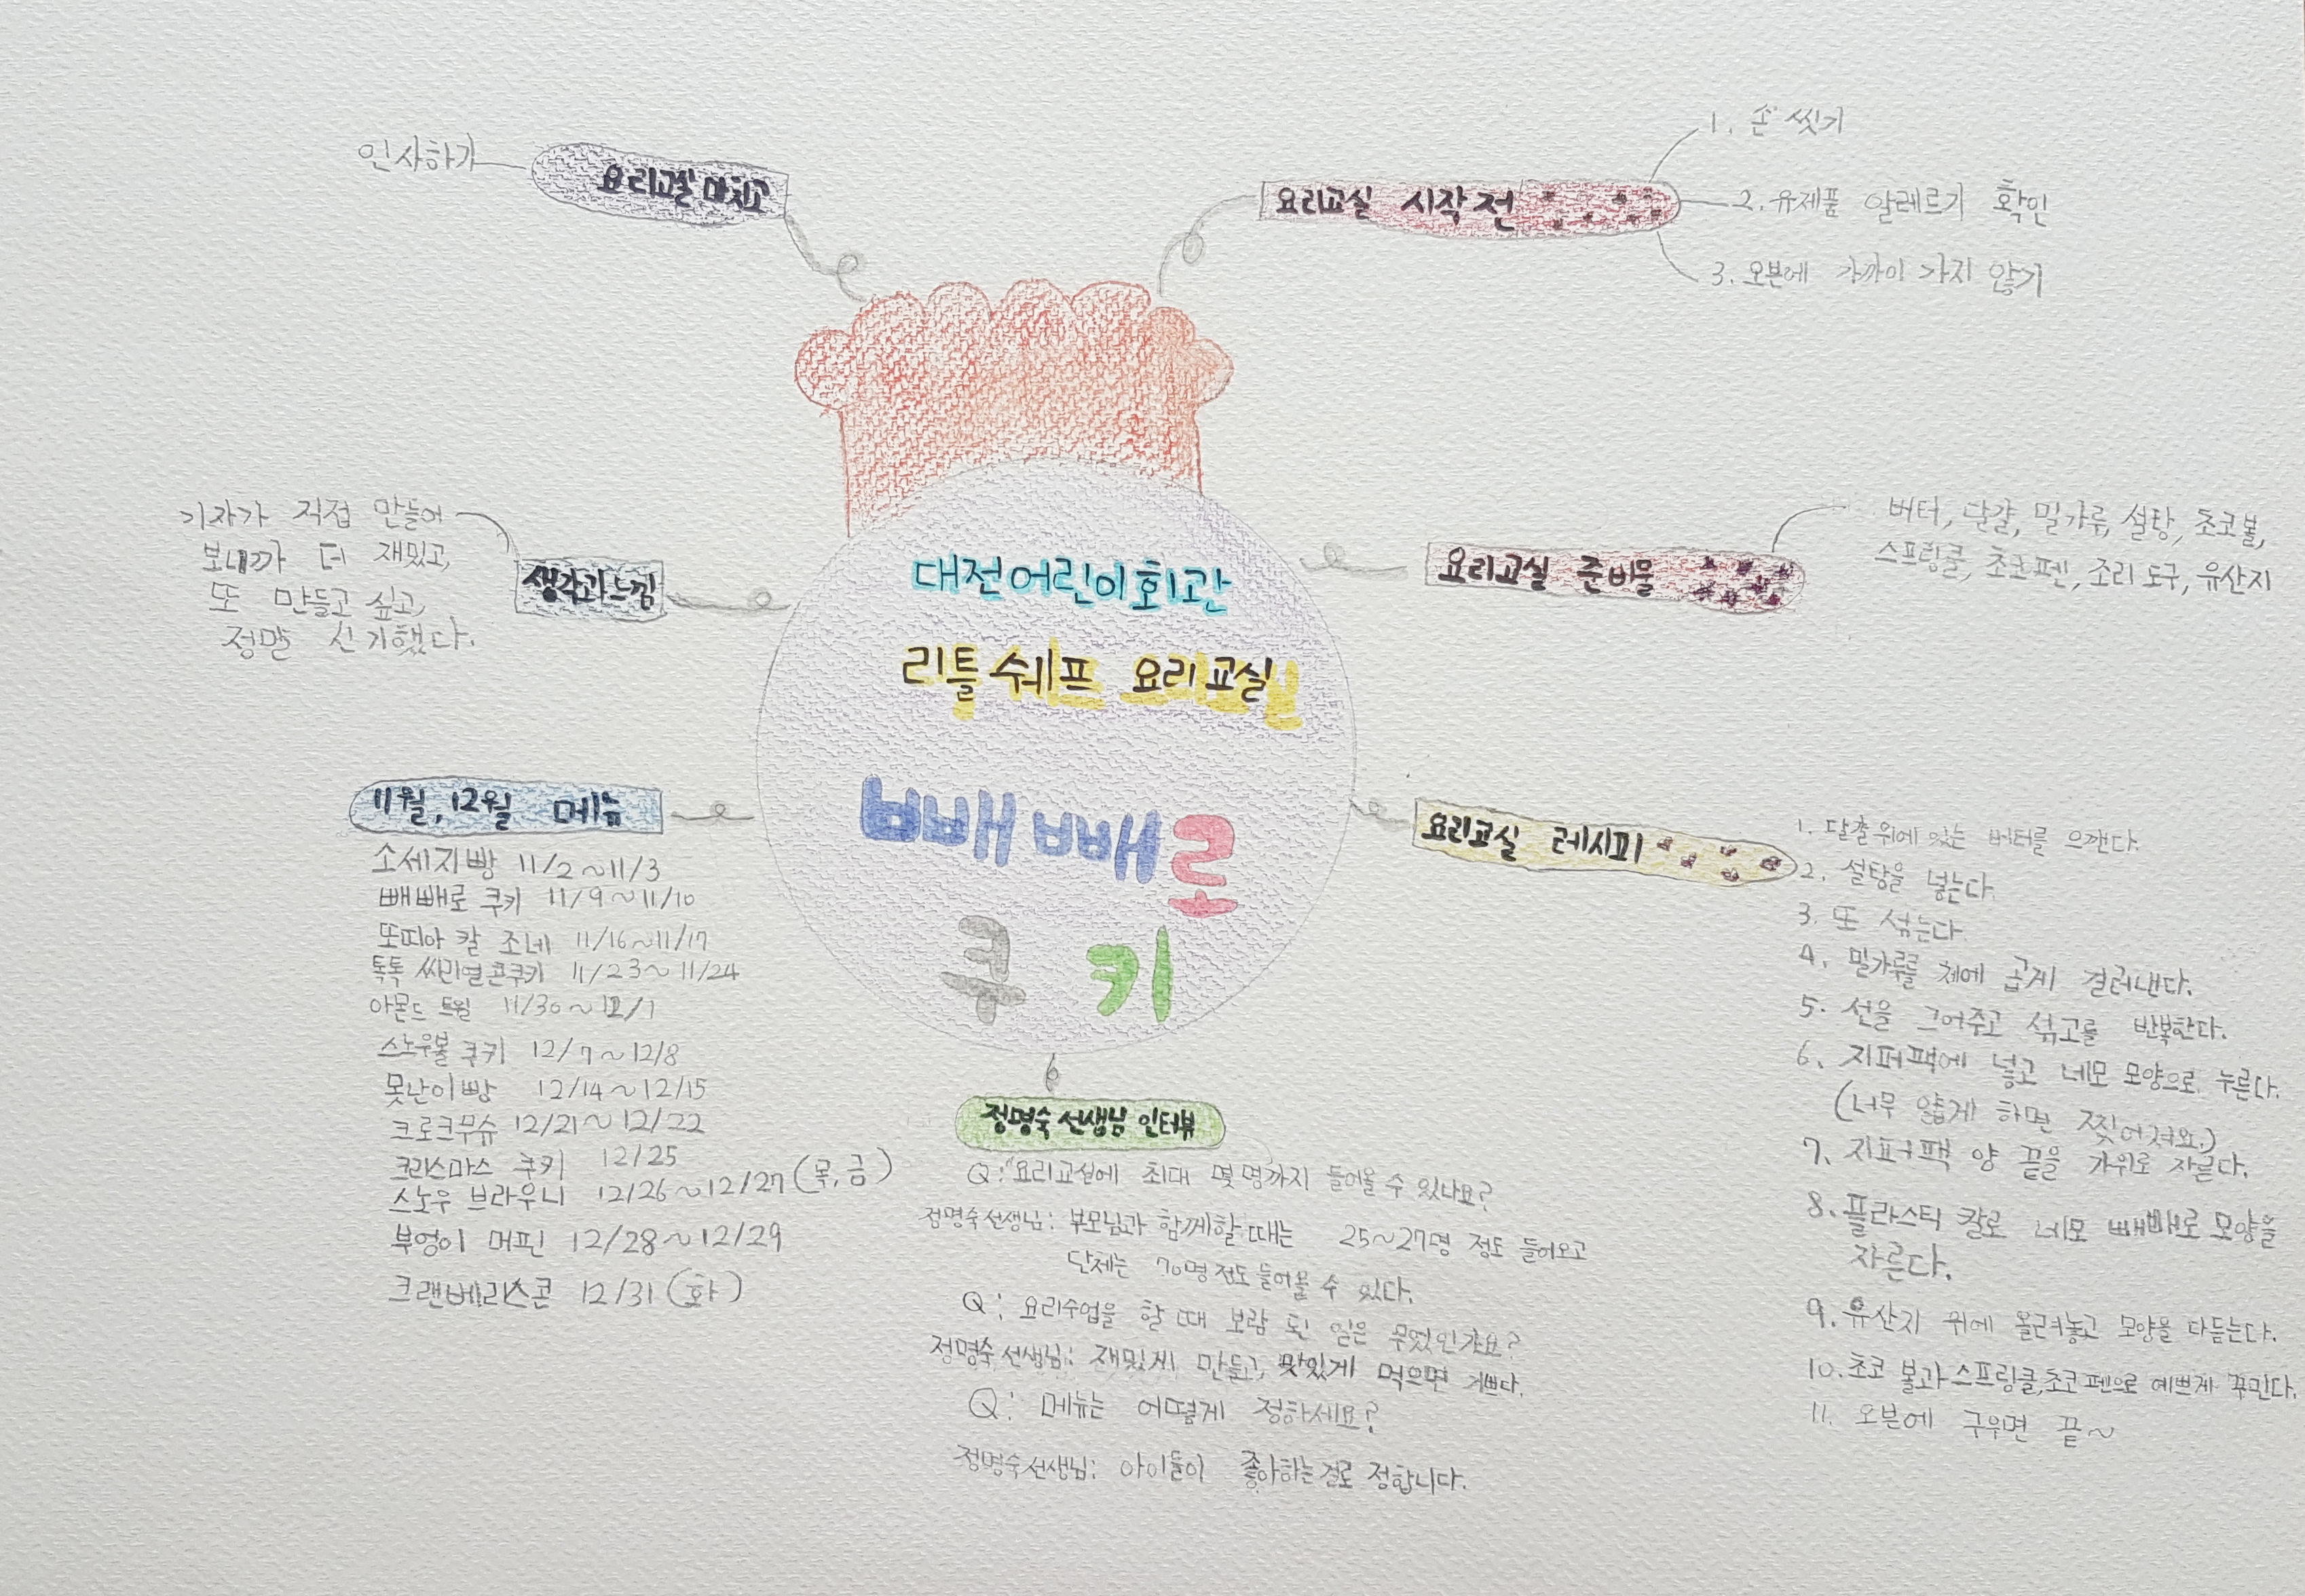 대전어린이회관
리틀쉐프 요리교실
빼빼로
쿠키
요리교실 시작 전
1. 손 씻기
2. 유제품 알레르기 확인
3. 오븐에 가까이 가지 않기
요리교실 준비물
버터, 달걀, 밀가루, 설탕, 초코볼,
스프링클, 초코펜, 조리 도구, 유산지
요리교실 레시피
1. 달걀 위에 있는 버터를 으깬다.
2. 설탕을 넣는다.
3. 또 섞는다.
4. 밀가루를 체에 곱게 걸러낸다.
5. 선을 그어주고 섞고를 반복한다.
6. 지퍼팩에 넣고 네모 모양으로 누른다.
(너무 얇게 하면 찢어져요.)
7. 지퍼팩 양 끝을 가위로 자른다.
8. 플라스틱 칼로 네모 빼빼로 모양을
자른다.
9. 유산지 위에 올려놓고 모양을 다듬는다.
10. 초코 볼과 스프링클, 초코펜으로 예쁘게 꾸민다.
11. 오븐에 구우면 끝~
정명숙 선생님 인터뷰
Q: "요리교실에 최대 몇 명까지 들어올 수 있나요?
정명숙선생님: 부모님과 함께할 때는 25~27명 정도 들어오고
단체는 70명 정도 들어올 수 있다.
Q: 요리수업을 할 때 보람 된 일은 무엇인가요?
정명숙 선생님: 재밌게 만들고, 맛있게 먹으면 기쁘다.
Q: 메뉴는 어떻게 정하세요?
정명숙선생님: 아이들이 좋아하는걸로 정합니다.
11월, 12월 메뉴
소세지빵 11/2~11/3
빼빼로 쿠키 11/9~11/10
또띠아 칼 조네 11/16~11/17
톡톡 씨리얼 콘쿠키 11/23~11/24
아몬드 트윌 11/30~12/1
스노우볼 쿠키 12/7~12/8
못난이빵 12/14~12/15
크로크무슈 12/21~12/22
크리스마스 쿠키 12/25
스노우 브라우니 12/26~12/27(목,금)
부엉이 머핀 12/28~12/29
크랜베리스콘 12/31(화)
생각과느낌
기자가 직접 만들어
보니까 더 재밌고,
또 만들고 싶고,
정말 신기했다.
요리교실 마치고
인사하기